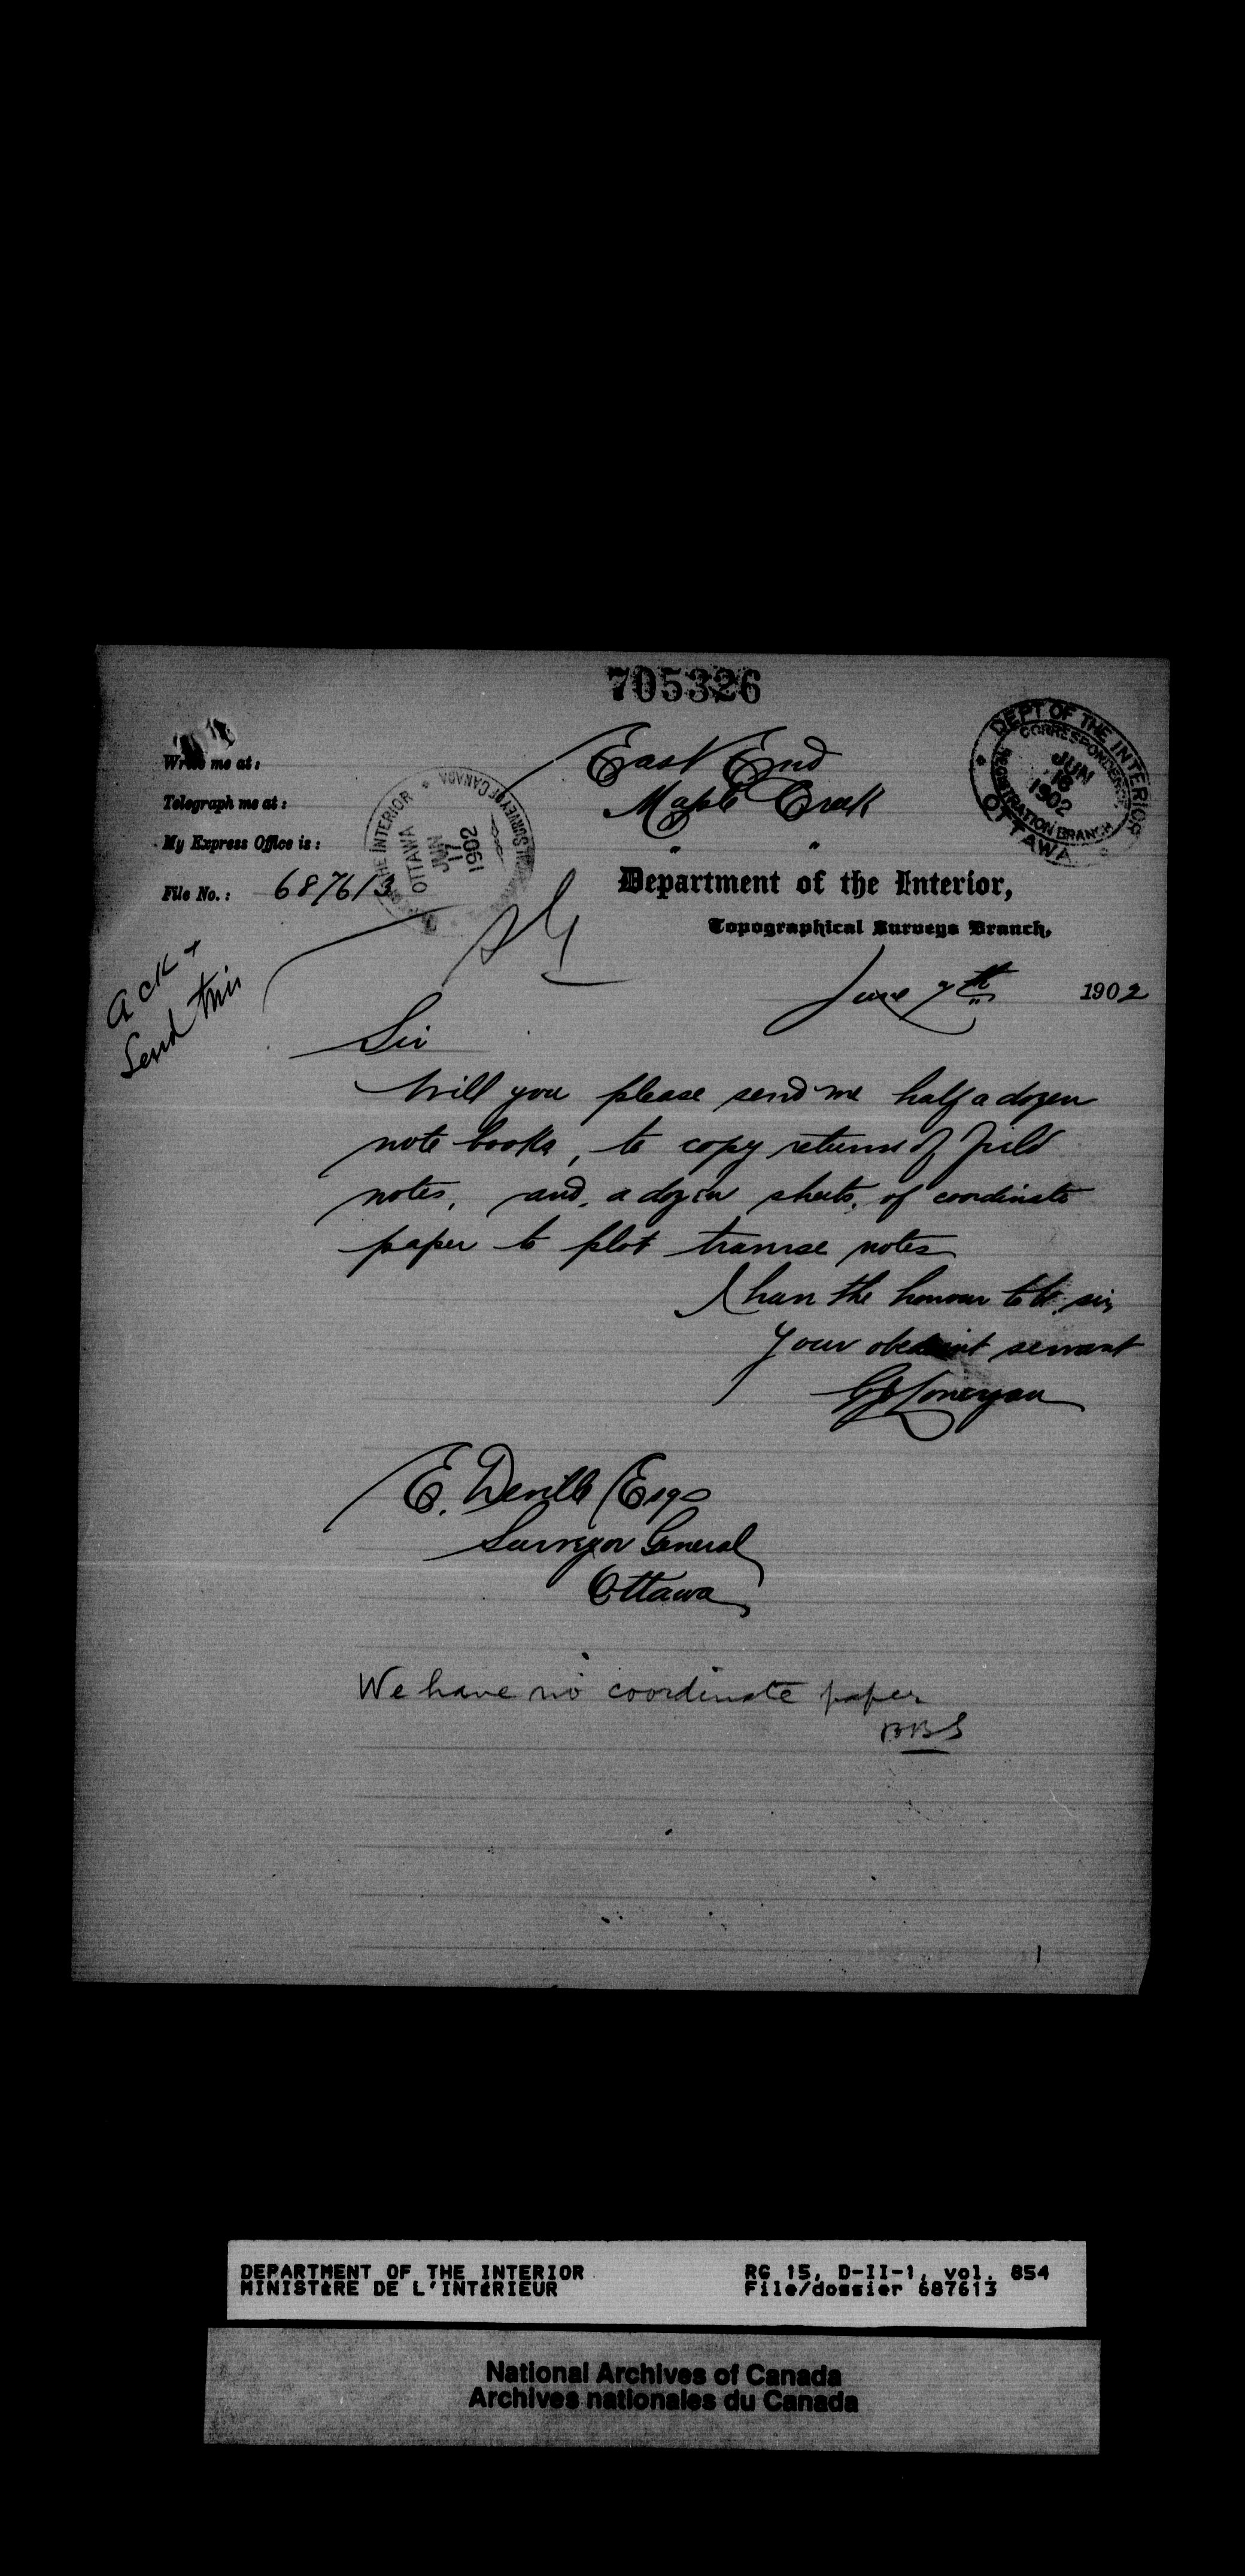 705326
Write me at: East End
Telegraph me at: Maple Creek
My Express Office is: " "
File No.: 687613
Department of the Interior,
Topographical Surveys Branch,
DEPT OF THE INTERIOR
CORRESPONDENCE
REGISTRATION BRANCH
JUN
16
1902
OTTAWA
THE INTERIOR
SURVEY OF CANADA
OTTAWA
JUN
17
1902
Ack +
Send this
June 7th 1902
Sir
Will you please send me half a dozen
note books, to copy returns of field
notes, and, a dozen sheets, of coordinate
paper to plot traverse notes
I have the honour to be sir,
Your obedient servant
GJLonergan
E. Deville Esqr
Surveyor General
Ottawa
We have no coordinate paper
BBS
DEPARTMENT OF THE INTERIOR RG 15, D-II-1, vol. 854
MINISTÈRE DE L'INTÉRIEUR File/dossier 687613
National Archives of Canada
Archives nationales du Canada